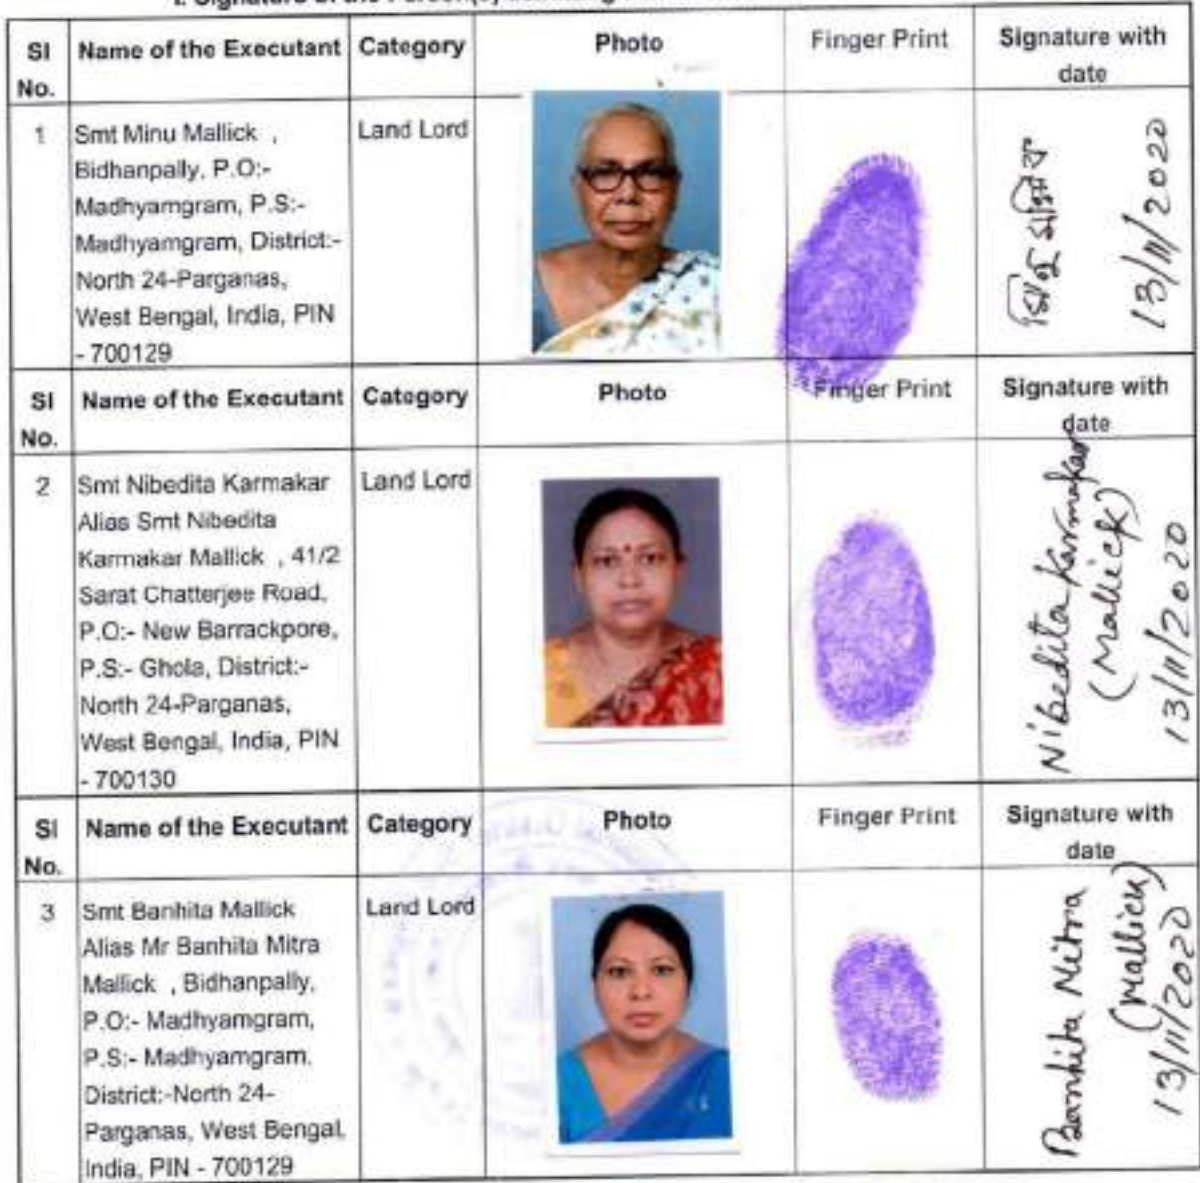 I. Signature of the Person(s)
SI No. Name of the Executant Category Photo Finger Print Signature with date
1 Smt Minu Mallick , Land Lord
Bidhanpally, P.O:-
Madhyamgram, P.S:-
Madhyamgram, District:-
North 24-Parganas,
West Bengal, India, PIN
- 700129
মিনু মল্লিক
13/11/2020
SI No. Name of the Executant Category Photo Finger Print Signature with date
2 Smt Nibedita Karmakar Land Lord
Alias Smt Nibedita
Karmakar Mallick , 41/2
Sarat Chatterjee Road,
P.O:- New Barrackpore,
P.S:- Ghola, District:-
North 24-Parganas,
West Bengal, India, PIN
- 700130
Nibedita Karmakar
(Mallick)
13/11/2020
SI No. Name of the Executant Category Photo Finger Print Signature with date
3 Smt Banhita Mallick Land Lord
Alias Mr Banhita Mitra
Mallick , Bidhanpally,
P.O:- Madhyamgram,
P.S:- Madhyamgram,
District:-North 24-
Parganas, West Bengal,
India, PIN - 700129
Banhita Mitra
(Mallick)
13/11/2020